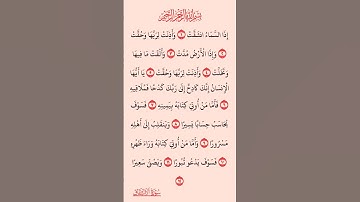 بِسْمِ اللَّهِ الرَّحْمَٰنِ الرَّحِيمِ
إِذَا السَّمَاءُ انْشَقَّتْ ۝ وَأَذِنَتْ لِرَبِّهَا وَحُقَّتْ
۝ وَإِذَا الْأَرْضُ مُدَّتْ ۝ وَأَلْقَتْ مَا فِيهَا
وَتَخَلَّتْ ۝ وَأَذِنَتْ لِرَبِّهَا وَحُقَّتْ ۝ يَا أَيُّهَا
الْإِنْسَانُ إِنَّكَ كَادِحٌ إِلَى رَبِّكَ كَدْحًا فَمُلَاقِيهِ
۝ فَأَمَّا مَنْ أُوتِيَ كِتَابَهُ بِيَمِينِهِ ۝ فَسَوْفَ
يُحَاسَبُ حِسَابًا يَسِيرًا ۝ وَيَنْقَلِبُ إِلَى أَهْلِهِ
مَسْرُورًا ۝ وَأَمَّا مَنْ أُوتِيَ كِتَابَهُ وَرَاءَ ظَهْرِهِ
۝ فَسَوْفَ يَدْعُو ثُبُورًا ۝ وَيَصْلَى سَعِيرًا
۝